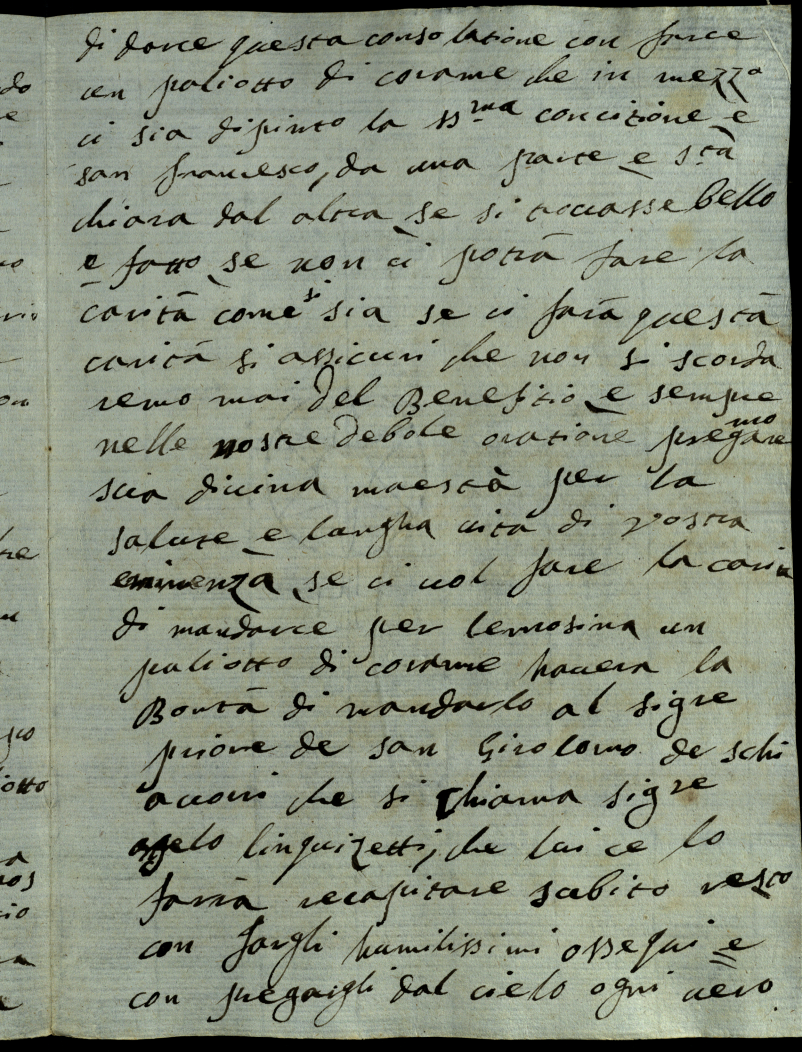 di darce questa consolatione con farce
un paliotto di corame che in mezzo
ci sia dipinto la SS.ma concitione e
san francesco, da una parte e s.tà
chiara dal altra se si trovasse bello
e fatto se non ci potrà fare la
carità come si sia se ci farà questà
carità si assicuri che non si scorda
remo mai del Benefitio e sempre
nelle nostre debole oratione pregaremo
sua divina maestà per la
salute e langha vità di vostra
eminenza se ci vol fare la carità
di mandarce per lemosina un
paliotto di corame havera la
Bontà di mandarlo al sigre
priore de san Girolomo de schi
avoni che si chiama sigre
linguizetti, che lui ce lo
farrà recapitare subito resto
con fargli humilissimi ossequi e
con pregargli dal cielo ogni vero
do
e
otto
re
io